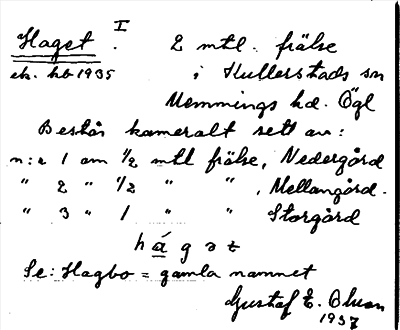 Haget I. 2 mtl. frälse
ek. kb 1935 i Kullerstads sn
Memmings hd. Ögl
Består kameralt sett av:
n:r 1 om 1/2 mtl frälse, Nedergård
" 2 " 1/2 " " , Mellangård.
" 3 " 1 " " Storgård
hágət
Se: Hagbo = gamla namnet
Gustaf E. Olson
1937